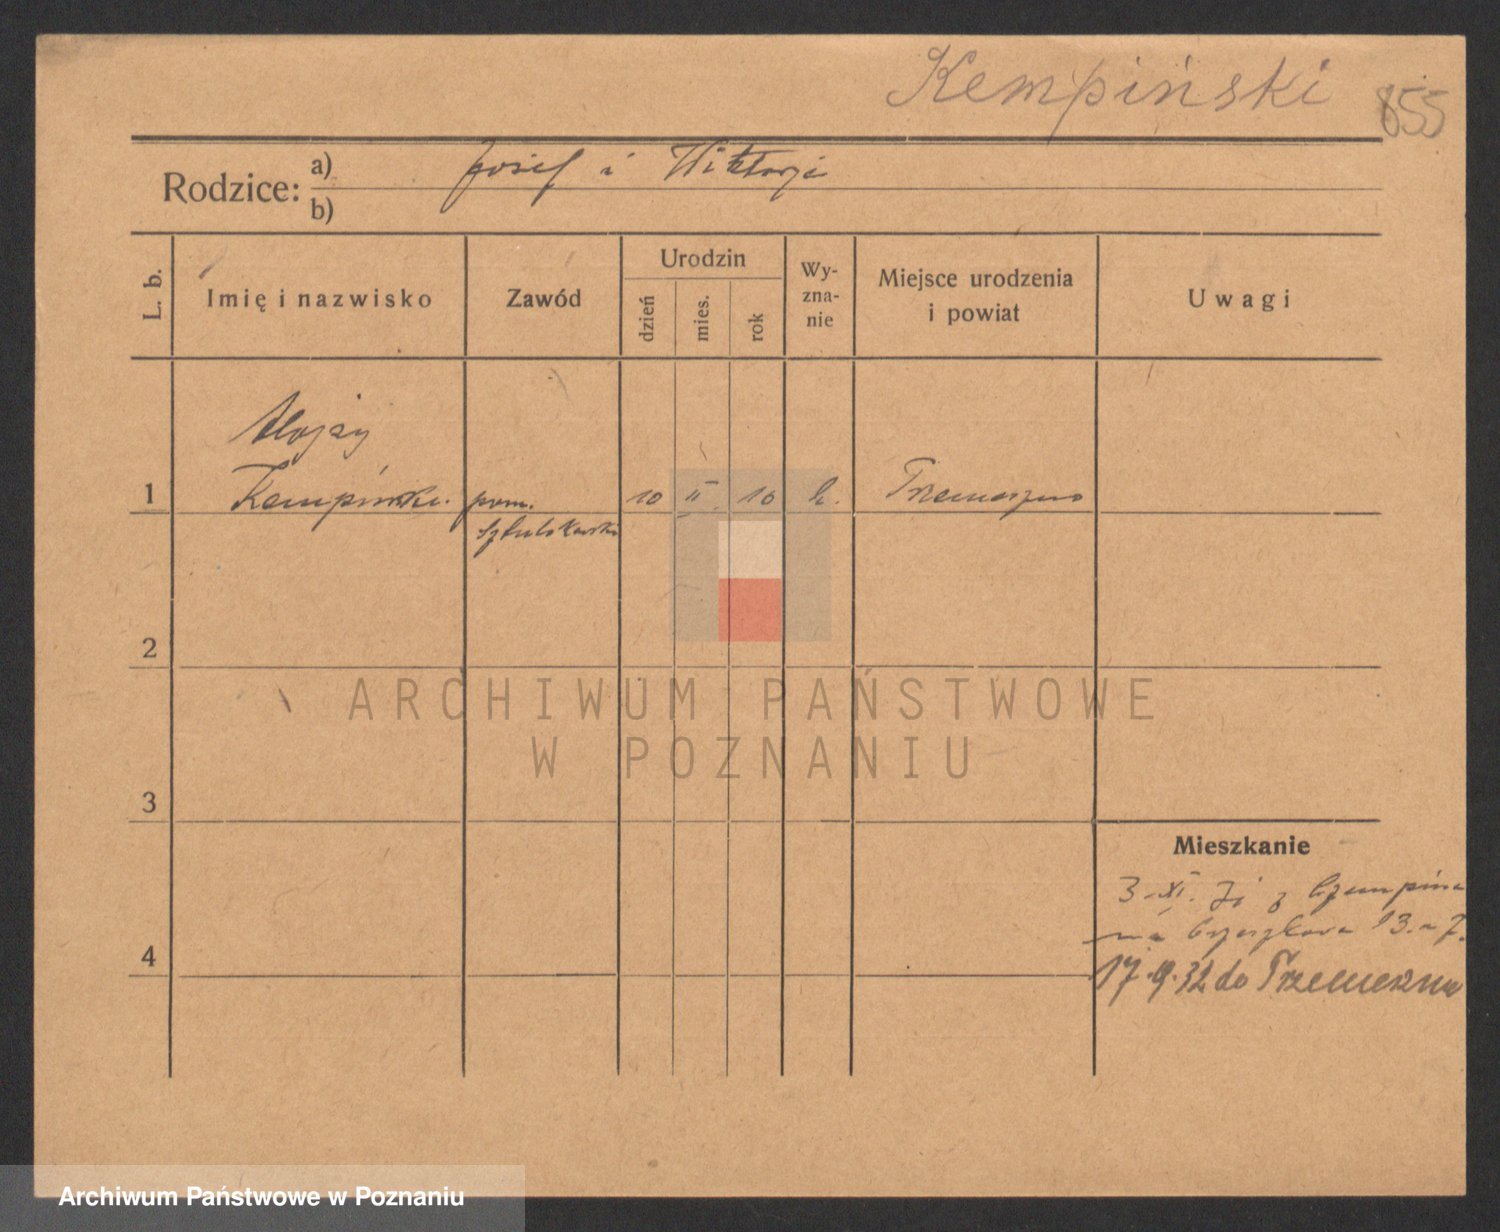 Kempiński 855
Rodzice: a) Josef i Wiktorja
b)
L. b.
Imię i nazwisko
Zawód
Urodzin
dzień
mies.
rok
Wy-
zna-
nie
Miejsce urodzenia
i powiat
Uwagi
Alojzy
1 Kempiński. pom. 10 II 10 k. Trzemeszno
2
ARCHIWUM PAŃSTWOWE
W POZNANIU
3
Mieszkanie
3. XI. z
13.
4
17.9.32 do Trzemeszna
Archiwum Państwowe w Poznaniu